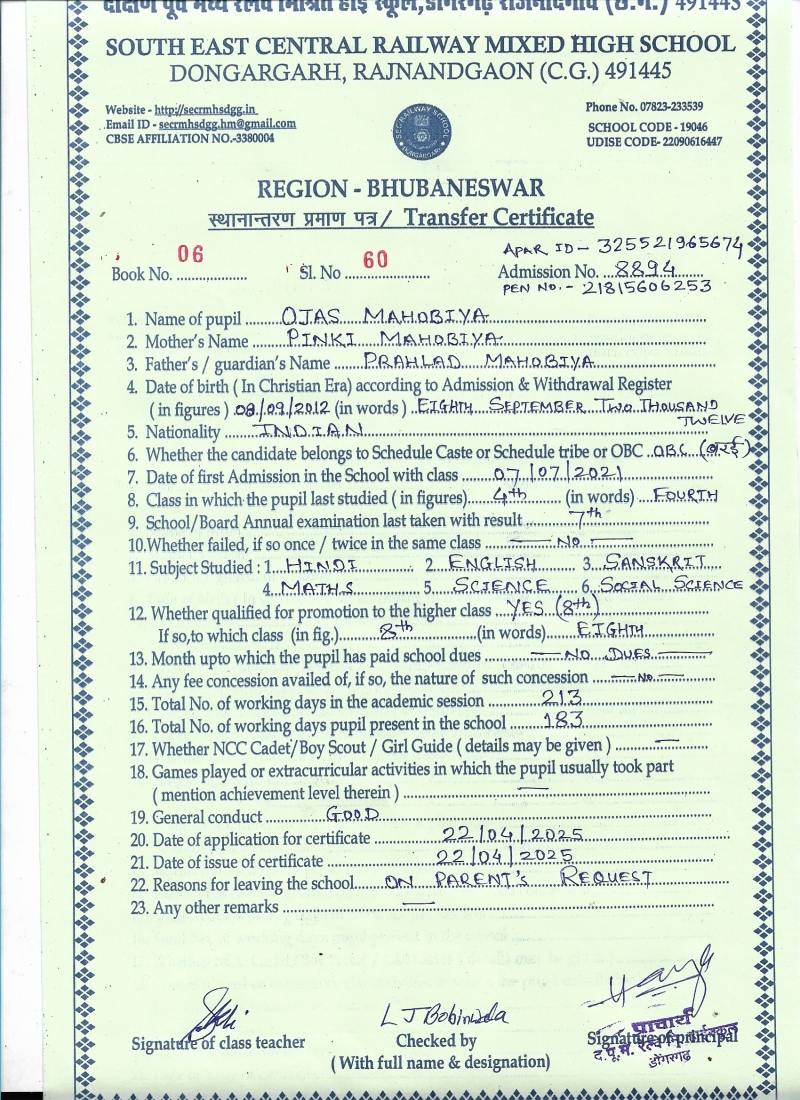 दक्षिण पूर्व मध्य रेलवे मिश्रित हाई स्कूल, डोंगरगढ़ राजनांदगांव (छ.ग.) 491445
SOUTH EAST CENTRAL RAILWAY MIXED HIGH SCHOOL
DONGARGARH, RAJNANDGAON (C.G.) 491445
Website - http://secrmhsdgg.in
Email ID - secrmhsdgg.hm@gmail.com
CBSE AFFILIATION NO.-3380004
Phone No. 07823-233539
SCHOOL CODE - 19046
UDISE CODE- 22090616447
REGION - BHUBANESWAR
स्थानान्तरण प्रमाण पत्र / Transfer Certificate
APAR ID - 325521965674
Book No. 06 Sl. No 60 Admission No. 8894
PEN NO. - 21815606253
1. Name of pupil OJAS MAHOBIYA
2. Mother's Name PINKI MAHOBIYA
3. Father's / guardian's Name PRAHLAD MAHOBIYA
4. Date of birth ( In Christian Era) according to Admission & Withdrawal Register
(in figures ) 08/09/2012 (in words ) EIGHTH SEPTEMBER TWO THOUSAND
TWELVE
5. Nationality INDIAN
6. Whether the candidate belongs to Schedule Caste or Schedule tribe or OBC OBC (बरई)
7. Date of first Admission in the School with class 07/07/2021
8. Class in which the pupil last studied ( in figures) 4th (in words) FOURTH
9. School/Board Annual examination last taken with result 7th
10.Whether failed, if so once / twice in the same class NO
11. Subject Studied : 1. HINDI 2 ENGLISH 3. SANSKRIT
4. MATHS 5. SCIENCE 6. SOCIAL SCIENCE
12. Whether qualified for promotion to the higher class YES (8th)
If so,to which class (in fig.) 8th (in words) EIGHTH
13. Month upto which the pupil has paid school dues NO DUES
14. Any fee concession availed of, if so, the nature of such concession NO
15. Total No. of working days in the academic session 213
16. Total No. of working days pupil present in the school 183
17. Whether NCC Cadet/Boy Scout / Girl Guide ( details may be given ) —
18. Games played or extracurricular activities in which the pupil usually took part
( mention achievement level therein ) —
19. General conduct GOOD
20. Date of application for certificate 22/04/2025
21. Date of issue of certificate 22/04/2025
22. Reasons for leaving the school ON PARENT'S REQUEST
23. Any other remarks —
Signature of class teacher
Checked by
( With full name & designation)
Signature of principal
प्राचार्य
डोंगरगढ़